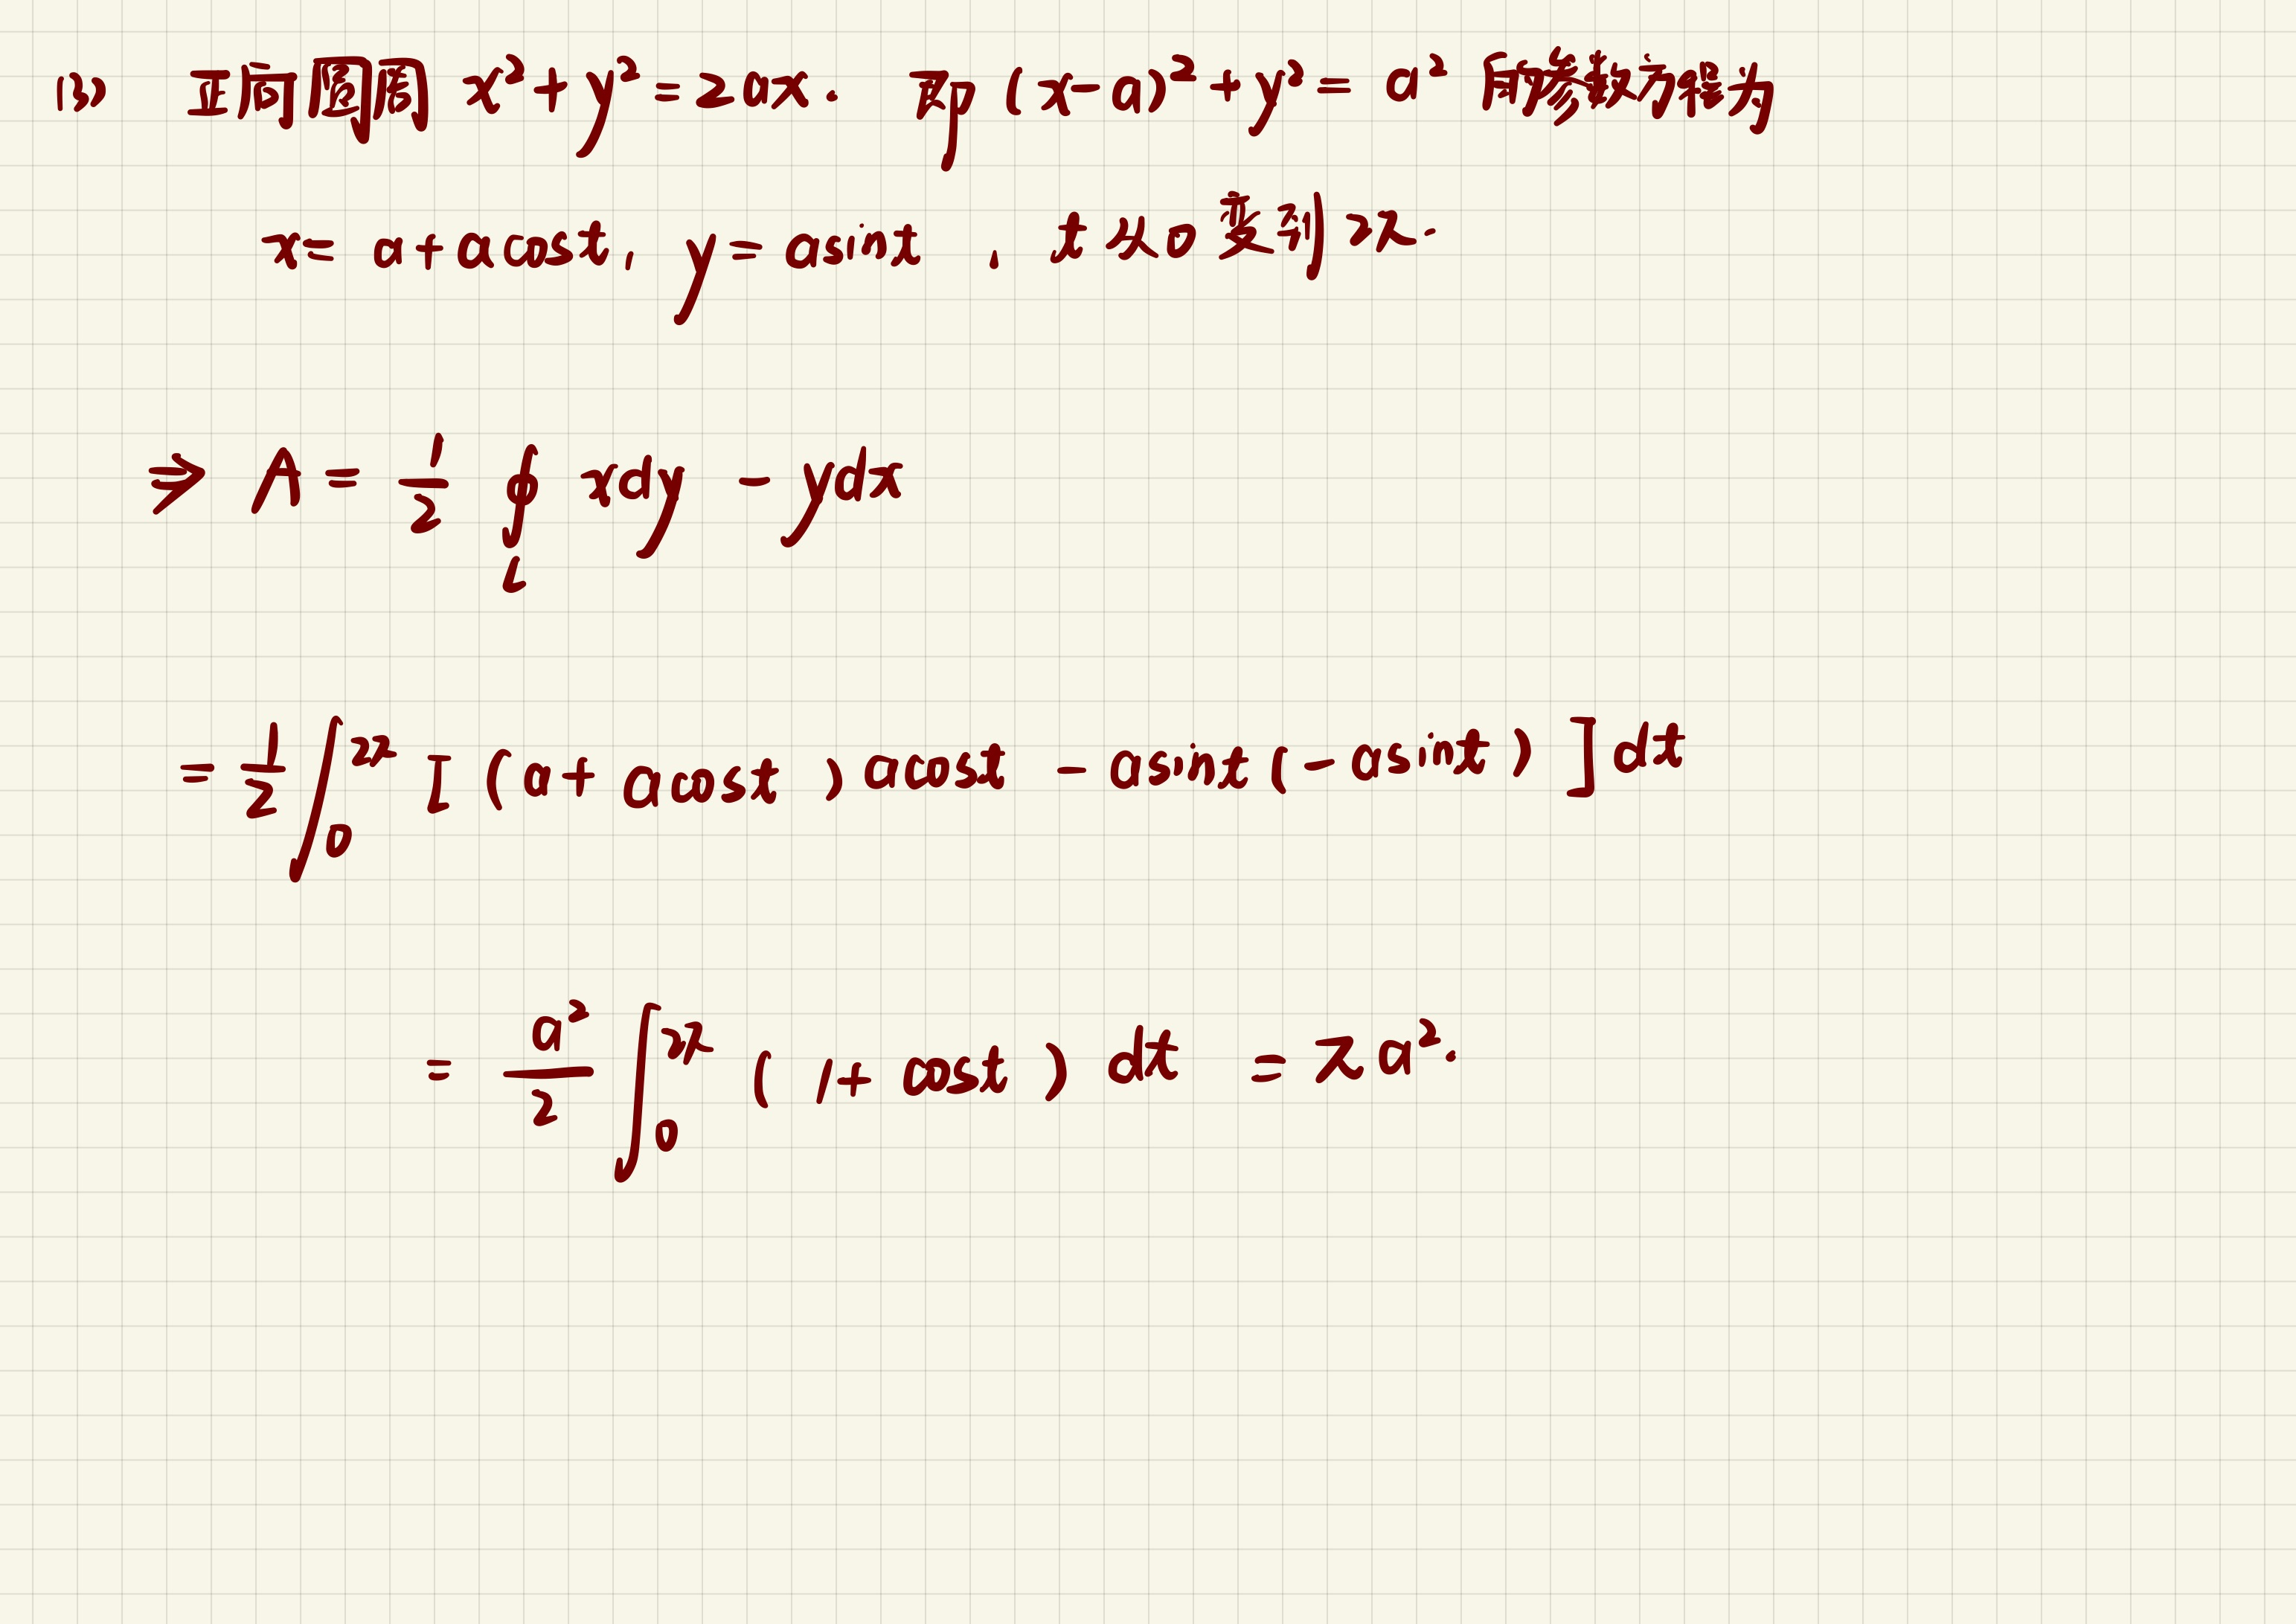 (3) 正向圆周 x²+y²=2ax. 即 (x-a)²+y²=a² 的参数方程为
x=a+acost, y=asint, t从0变到2π.
⇒ A= 1/2 ∮_L xdy - ydx
= 1/2 ∫_0^{2π} [(a+acost)acost - asint(-asint)]dt
= a²/2 ∫_0^{2π} (1+cost) dt = πa².